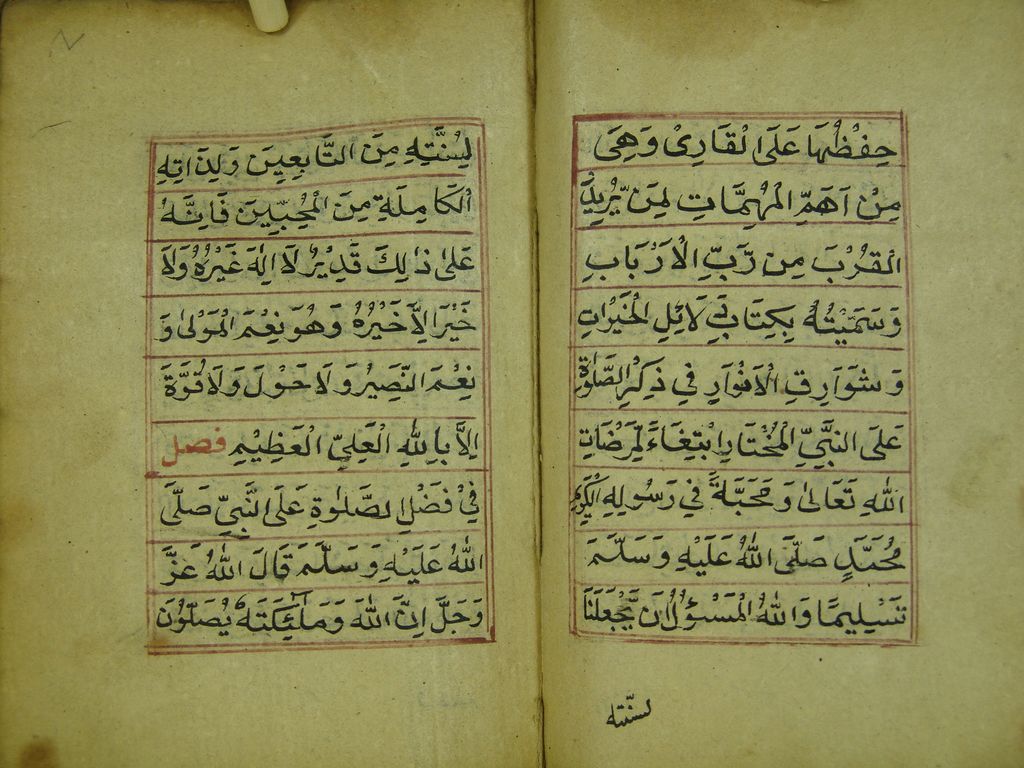 حِفْظُهَا عَلَى الْقَارِیْ وَهِیَ
مِنْ اَهَمِّ الْمُهِمَّاتِ لِمَنْ يُّرِيْدُ
الْقُرْبَ مِنْ رَّبِّ الْاَرْبَابِ
وَسَمَّيْتُهُ بِكِتَابِ دَلَائِلِ الْخَيْرَاتِ
وَشَوَارِقِ الْاَنْوَارِ فِي ذِكْرِ الصَّلٰوةِ
عَلَى النَّبِيِّ الْمُخْتَارِ ابْتِغَاءً لِّمَرْضَاتِ
اللّٰهِ تَعَالٰى وَمَحَبَّةً فِي رَسُوْلِهِ الْكَرِيْمِ
مُحَمَّدٍ صَلَّى اللّٰهُ عَلَيْهِ وَسَلَّمَ
تَسْلِيمًا وَاللّٰهُ الْمَسْؤُلُ اَنْ يَّجْعَلَنَا
لسنّته
لِسُنَّتِهِ مِنَ التَّابِعِيْنَ وَلِذَاتِهِ
الْكَامِلَةِ مِنَ الْمُحِبِّيْنَ فَاِنَّهُ
عَلٰى ذٰلِكَ قَدِيْرٌ لَا اِلٰهَ غَيْرُهُ وَلَا
خَيْرَ اِلَّا خَيْرُهُ وَهُوَ نِعْمَ الْمَوْلٰى وَ
نِعْمَ النَّصِيْرُ وَلَا حَوْلَ وَلَا قُوَّةَ
اِلَّا بِاللّٰهِ الْعَلِيِّ الْعَظِيْمِ فصل
فِيْ فَضْلِ الصَّلٰوةِ عَلَى النَّبِيِّ صَلَّى
اللّٰهُ عَلَيْهِ وَسَلَّمَ قَالَ اللّٰهُ عَزَّ
وَجَلَّ اِنَّ اللّٰهَ وَمَلٰٓئِكَتَهُ يُصَلُّوْنَ